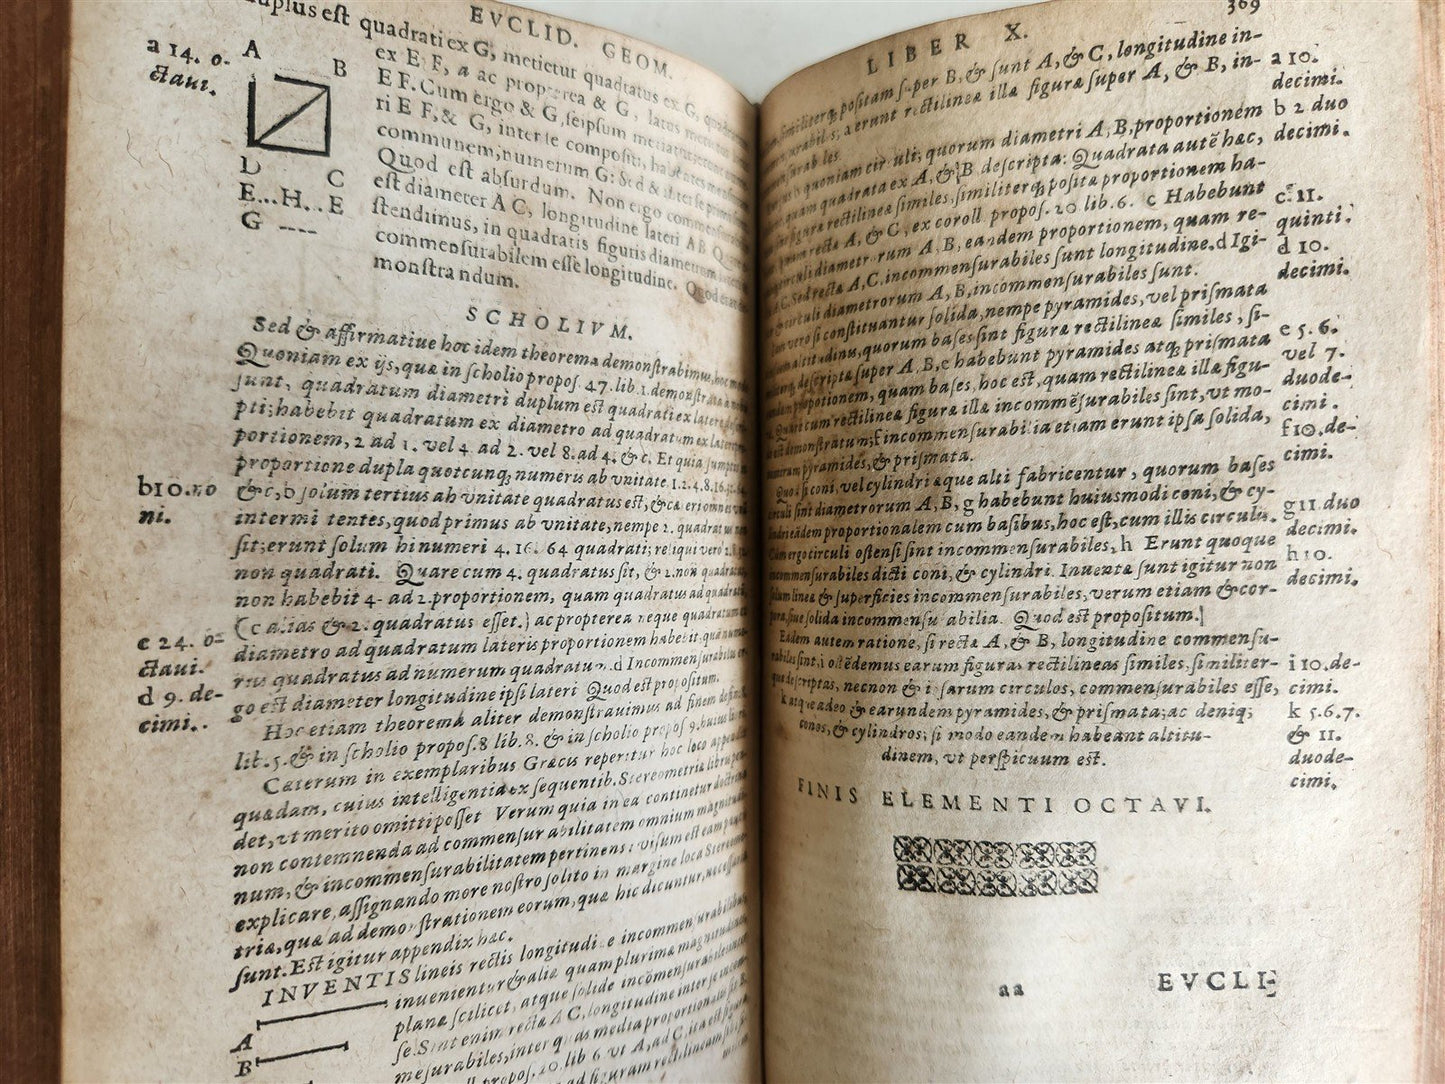 EVCLID. GEOM.
duplus est quadrati ex G, metietur quadratus ex G, quadratum
ex E F, a ac propterea & G, latus metietur
E F. Cum ergo & G, seipsum metiatur, erunt
ri E F, & G, inter se compositi, habentes mensuram
communem, numerum G: Sed & inter se primi
Quod est absurdum. Non ergo commensurabilis
est diameter A C, longitudine lateri A B. Quod
stendimus, in quadratis figuris diametrum
commensurabilem esse longitudine. Quod erat de-
monstrandum.
a 14. o-
ctaui.
A
B
D
C
E...H..E
G ----
SCHOLIVM.
Sed & affirmatiue hoc idem theorema demonstrabimus, hoc modo
Quoniam ex ijs, quæ in scholio propos. 47. lib. 1. demonstrata
sunt, quadratum diametri duplum est quadrati ex latere
pti; habebit quadratum ex diametro ad quadratum ex latere
portionem, 2 ad 1. vel 4 ad 2. vel 8. ad 4. &c. Et quia sumptis
proportione dupla quotcunq; numeris ab vnitate 1. 2. 4. 8. 16.
&c, b solum tertius ab vnitate quadratus est, & cæteri omnes
intermittentes, quod primus ab vnitate, nempe 2. quadratus non
sit; erunt solum hi numeri 4. 16. 64 quadrati; reliqui vero 2. 8.
non quadrati. Quare cum 4. quadratus sit, & 2. non quadratus,
non habebit 4. ad 2. proportionem, quam quadratus ad quadratum,
(c alias & 2. quadratus esset.) ac propterea neque quadratum ex
diametro ad quadratum lateris proportionem habebit, quam nume-
rus quadratus ad numerum quadratum. d Incommensurabilis er-
go est diameter longitudine ipsi lateri Quod est propositum.
b 10. no
ni.
c 24. o-
ctaui.
d 9. de-
cimi.
Hoc etiam theorema aliter demonstrauimus ad finem defin. 8.
lib. 5. & in scholio propos. 8 lib. 8. & in scholio propos 9. huius
Cæterum in exemplaribus Græcis reperitur hoc loco appendix
quædam, cuius intelligentia ex sequentib. Stereometriæ libris pen-
det, vt merito omitti posset Verum quia in ea continetur doctrina
non contemnenda ad commensurabilitatem omnium magnitudi-
num, & incommensurabilitatem pertinens: visum est eam paucis
explicare, assignando more nostro solito in margine loca Stereome-
triæ, quæ ad demonstrationem eorum, quæ hic dicuntur, necessaria
sunt. Est igitur appendix hæc.
INVENTIS lineis rectis longitudine incommensurabilibus,
inuenientur & aliæ quam plurimæ magnitudines
planæ scilicet, atque solidæ incommensurabiles inter
se. Sint enim rectæ A C, longitudine inter se incom-
mensurabiles, inter quas media proportionalis sit B,
propos. 10. lib 6. vt A, ad C, ita est figura
ad figuram rectilineam
A
B
LIBER X.
369
similiterq; positam super B, & sunt A, & C, longitudine in-
erunt rectilineæ illæ figuræ super A, & B, in-
quoniam circuli, quorum diametri A, B, proportionem
quam quadrata ex A, & B descripta: Quadrata autē hæc,
figuræ rectilineæ similes, similiterq; positæ proportionem ha-
quam recta A, & C, ex coroll. propos. 20 lib. 6. c Habebunt
circuli diametrorum A, B, eandem proportionem, quam re-
& C. Sed rectæ A, C, incommensurabiles sunt longitudine. d Igi-
tur & circuli diametrorum A, B, incommensurabiles sunt.
Iam vero si constituantur solida, nempe pyramides, vel prismata
altitudinis, quorum bases sint figuræ rectilineæ similes, si-
militerq; descriptæ super A, B, e habebunt pyramides atq; prismata
eandem proportionem, quam bases, hoc est, quam rectilineæ illæ figu-
ræ. Quare cum rectilineæ figuræ illæ incommēsurabiles sint, vt mo-
do est demonstratum; f incommensurabilia etiam erunt ipsa solida,
nimirum pyramides, & prismata.
Quod si coni, vel cylindri æque alti fabricentur, quorum bases
circuli sint diametrorum A, B, g habebunt huiusmodi coni, & cy-
lindri eādem proportionalem cum basibus, hoc est, cum illis circulis.
Cum ergo circuli ostensi sint incommensurabiles, h Erunt quoque
incommensurabiles dicti coni, & cylindri. Inuentæ sunt igitur non
solum lineæ & superficies incommensurabiles, verum etiam & cor-
pora, siue solida incommensurabilia. Quod est propositum.]
Eadem autem ratione, si rectæ A, & B, longitudine commensu-
rabiles sint, i ostēdemus earum figuras rectilineas similes, similiter-
que descriptas, necnon & ipsarum circulos, commensurabiles esse,
k atque adeo & earundem pyramides, & prismata; ac deniq;
conos, & cylindros; si modo eandem habeant altitu-
dinem, vt perspicuum est.
a 10.
decimi.
b 2 duo
decimi.
c 11.
quinti.
d 10.
decimi.
e 5. 6.
vel 7.
duode-
cimi.
f 10. de-
cimi.
g 11. duo
decimi.
h 10.
decimi.
i 10. de-
cimi.
k 5. 6. 7.
& 11.
duode-
cimi.
FINIS ELEMENTI OCTAVI.
aa
EVCLI-